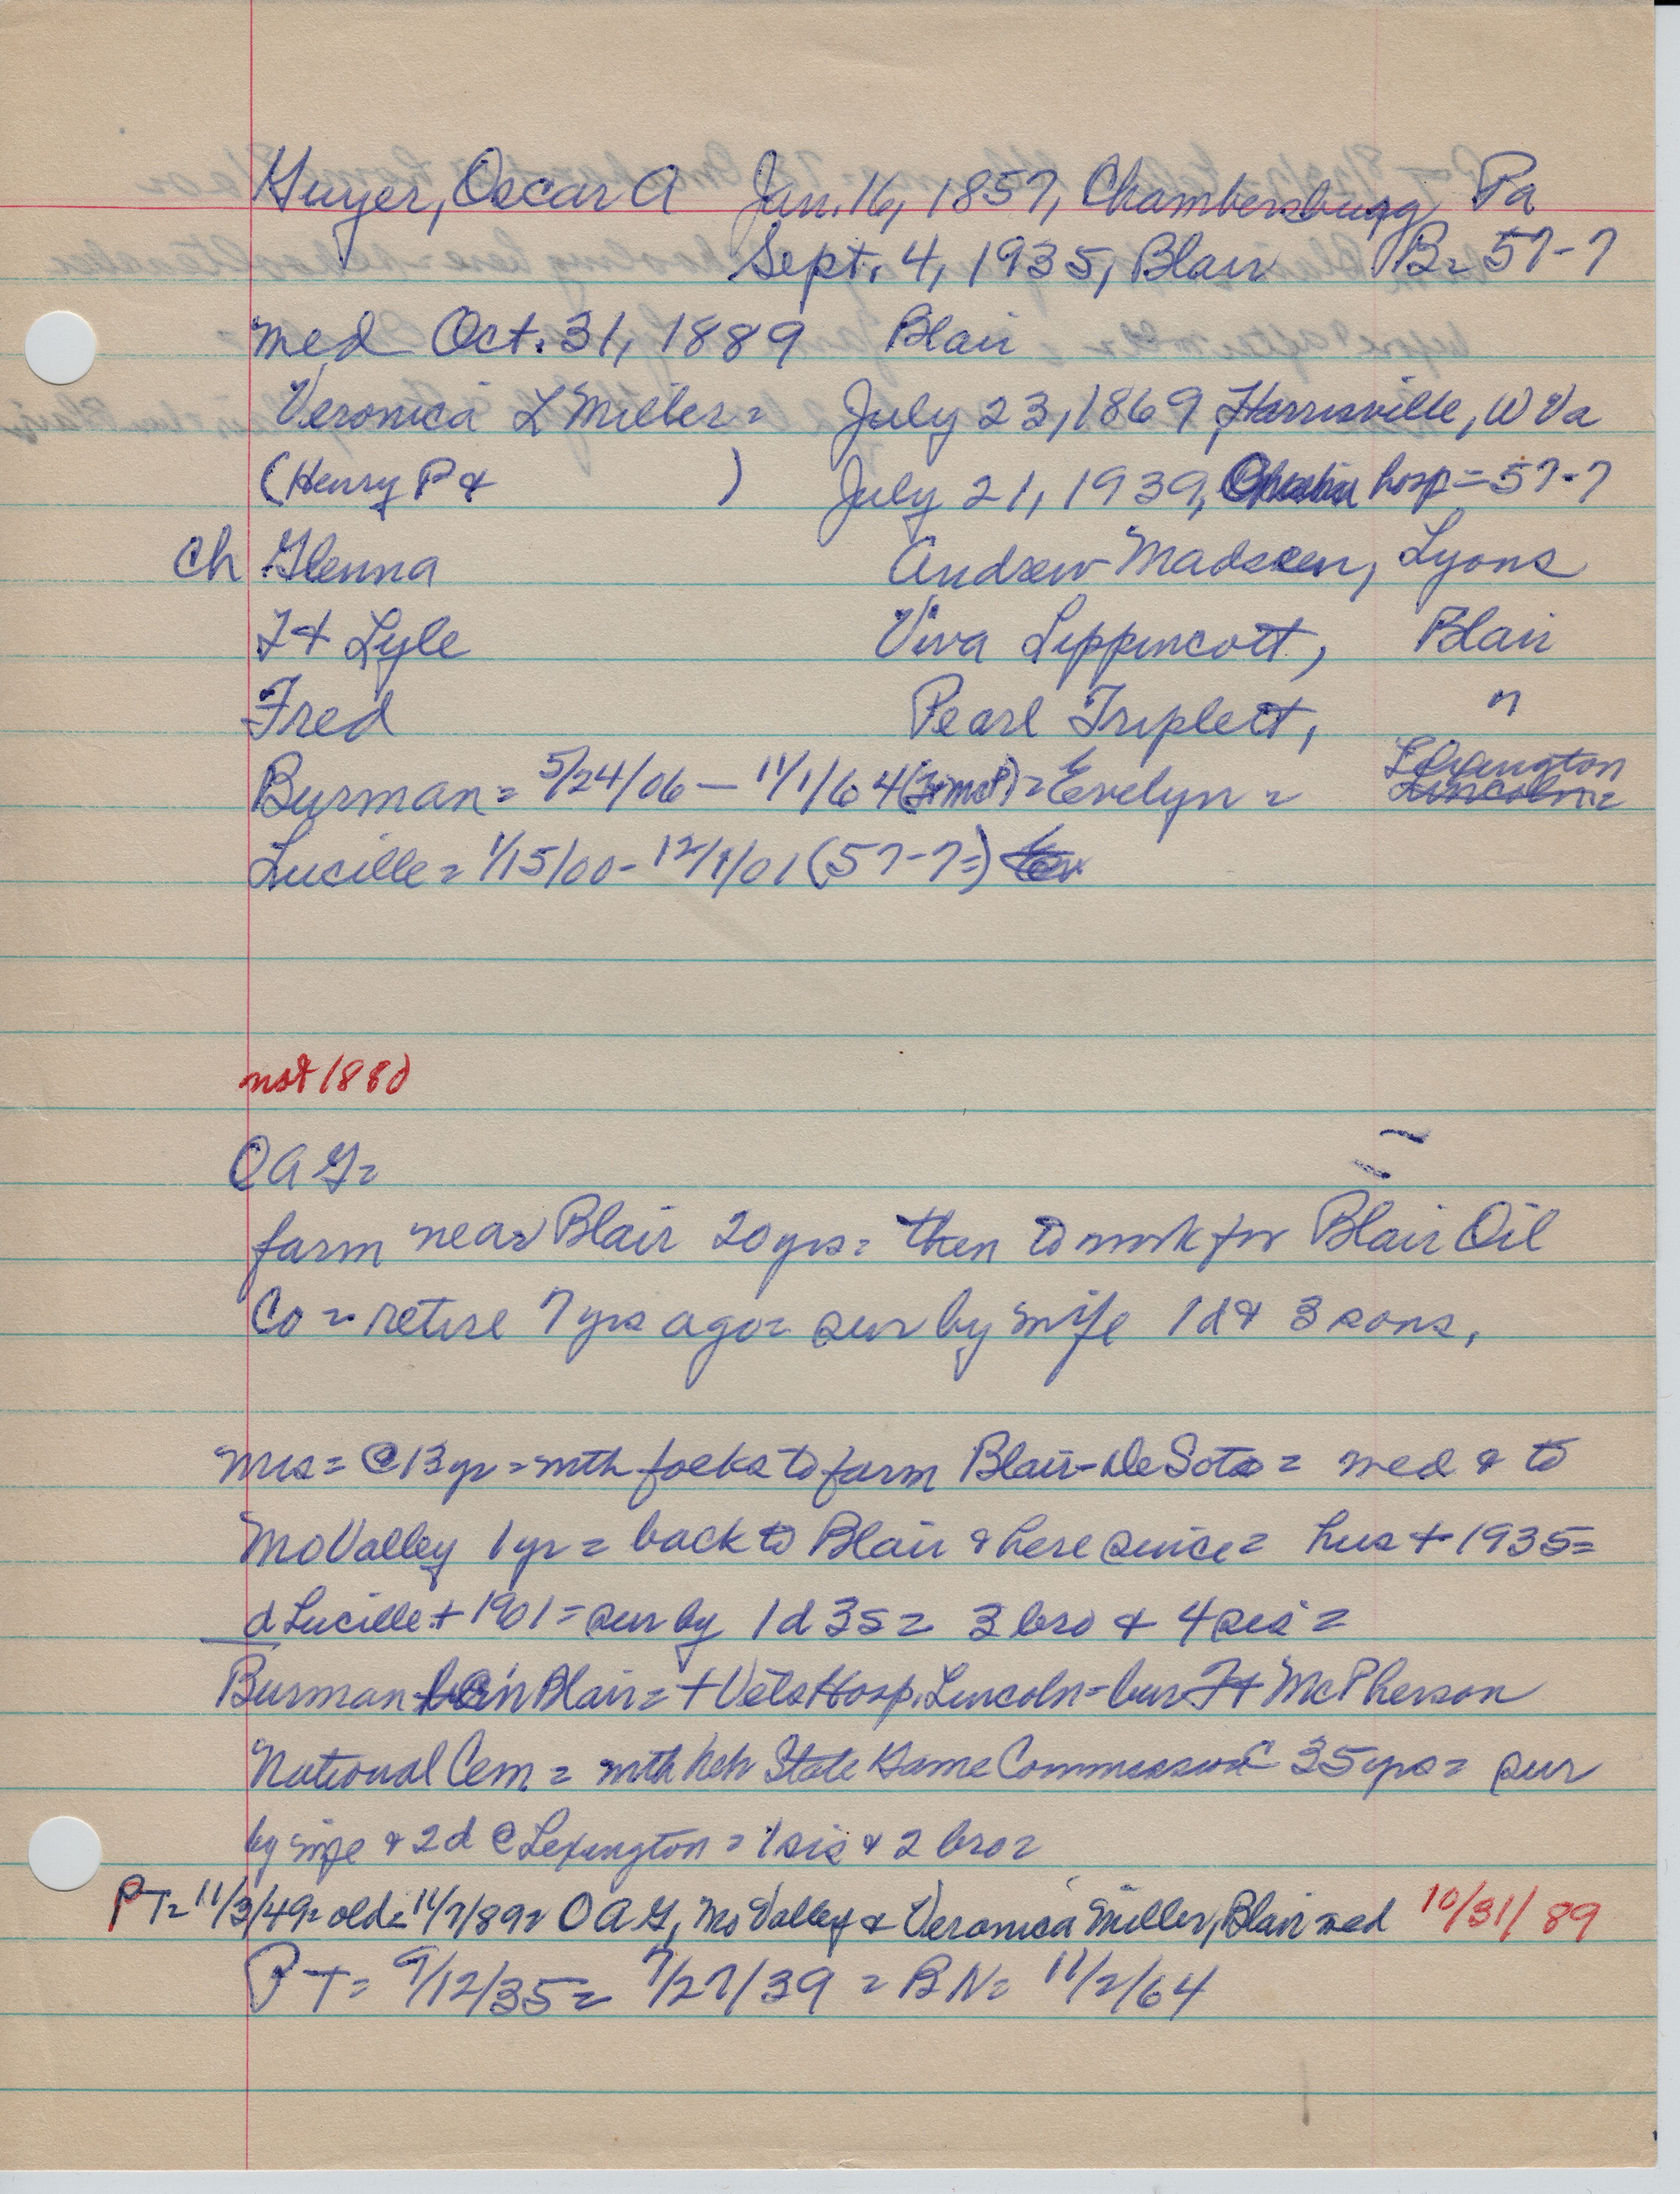 Guyer, Oscar A Jan. 16, 1857, Chambersbugg, Pa
Sept. 4, 1935, Blair B= 57-7
med Oct. 31, 1889 Blair
Veronica L Miller= July 23, 1869, Harrisville, W Va
(Henry P & ) July 21, 1939, hosp = 57-7
Ch Glenna Andrew Madsen, Lyons
J+ Lyle Viva Lippincott, Blair
Fred Pearl Triplett, "
Burman = 5/24/06 - 11/1/64 (Ft McP) = Evelyn = Lexington
Lincoln=
Lucille = 1/15/00 - 12/1/01 (57-7=)
not 1880
OAG=
farm near Blair 20 yrs = then to work for Blair Oil
Co = retire 7 yrs ago = sur by wife 1d & 3 sons,
Mrs = @ 13 yr = with folks to farm Blair-DeSoto = med & to
Mo Valley 1 yr = back to Blair & here since = hus + 1935=
d Lucille + 1901 = sur by 1d 3s = 3 bro & 4 sis =
Burman in Blair = + Vets Hosp. Lincoln = bur Ft McPherson
National Cem = with Neb State Game Commission 35 yrs = sur
by wife & 2d @ Lexington = 1 sis & 2 bro =
PT= 11/3/49= old= 11/7/89= OAG, Mo Valley & Veronica Miller, Blair med 10/31/89
PT= 9/12/35 = 7/27/39 = BN= 11/2/64